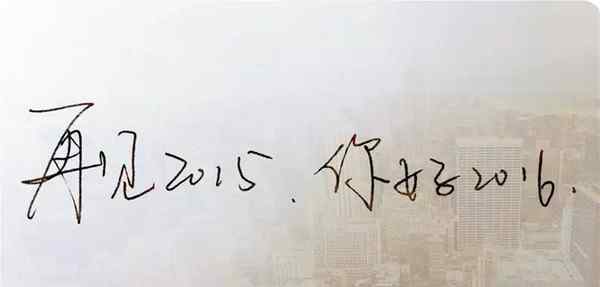 再见2015、你好2016.